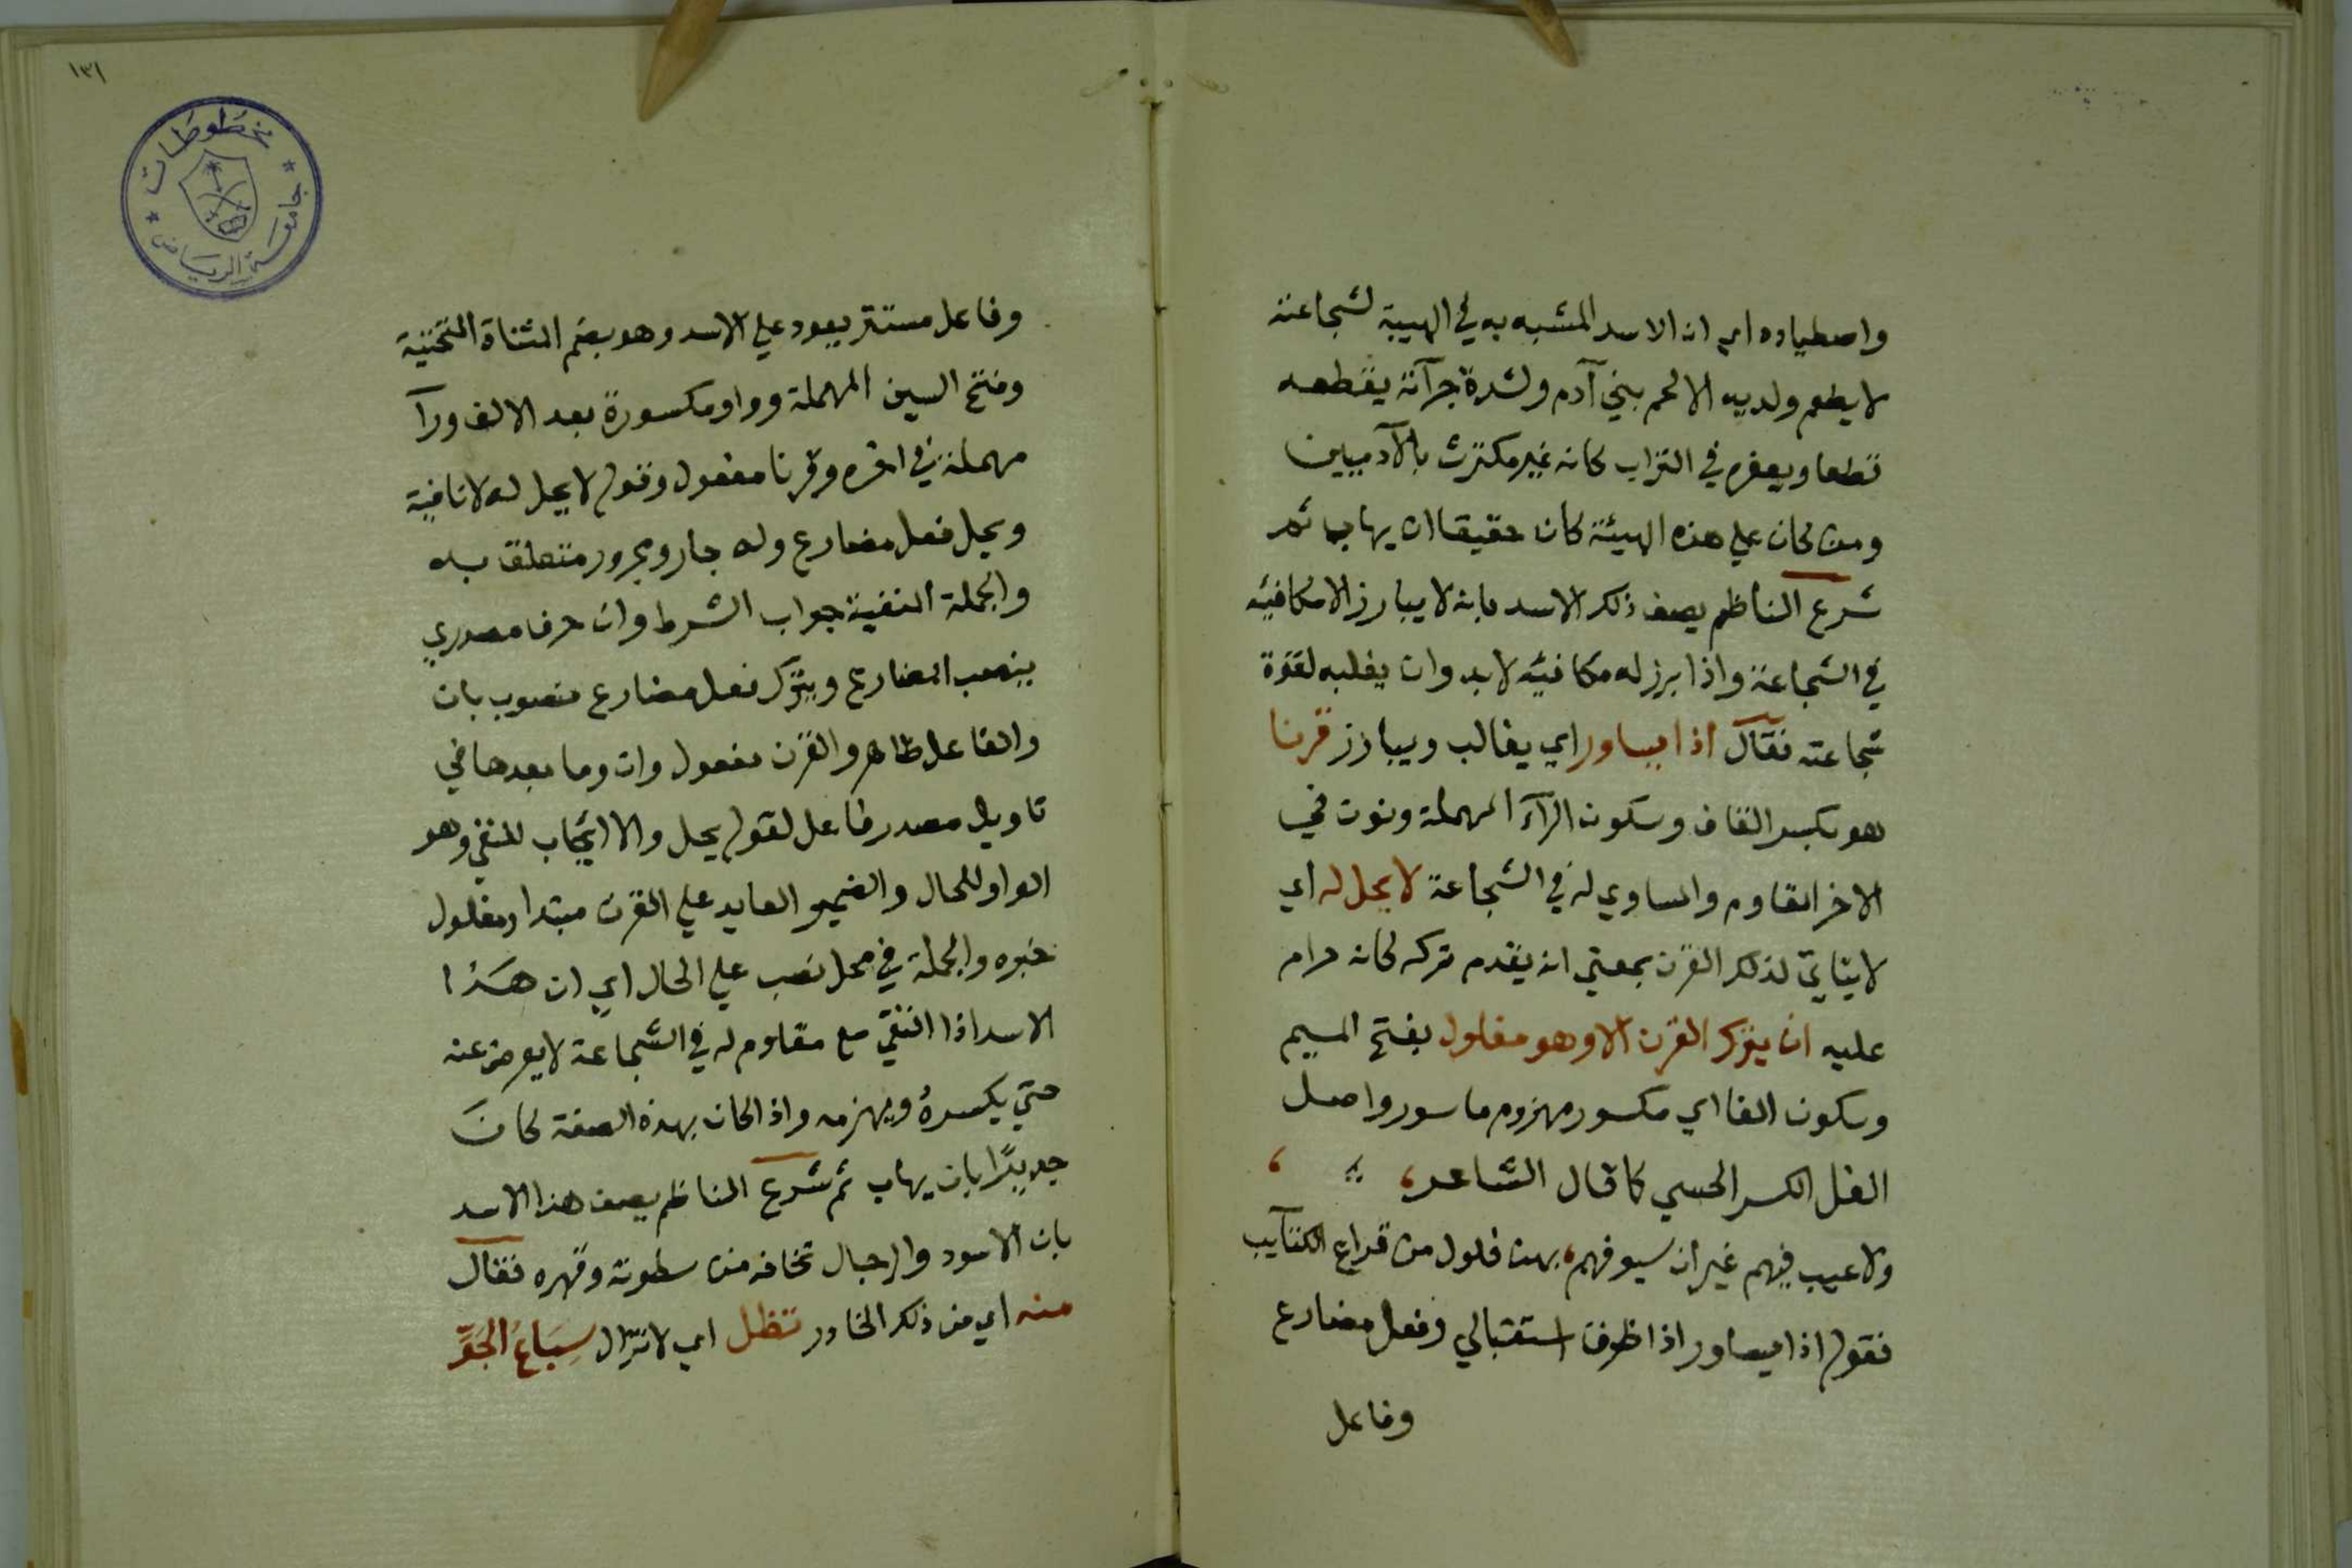 واصطياده اي ان الاسد المشبه به في الهيبة لشجاعته
لا يطعم ولديه الا لحم بني آدم ولشدة جرآته يقطعه
قطعا ويعفره في التراب كانه غير مكترث بالآدميين
ومن كان علي هذه الهيئة كان حقيقا ان يهاب ثم
شرع الناظم يصف ذلك الاسد بانه لا يبارز الا مكافيه
في الشجاعة واذا برز له مكافيه لا بد وان يغلبه لقوة
شجاعته فقال اذا يساور اي يغالب ويبارز قرنا
هو بكسر القاف وسكون الرآء المهملة ونون في
الاخر المقاوم والمساوي له في الشجاعة لا يحل له اي
لا يتاتي لذلك القرن بمعني انه يقدم تركه كانه حرام
عليه ان يترك القرن الا وهو مفلول بفتح الميم
وسكون الفا اي مكسور مهزوم ماسور واصل
الفل الكسر الحسي كما قال الشاعر،
ولا عيب فيهم غير ان سيوفهم، بهن فلول من قراع الكتآيب
فقوله اذا يساور اذا ظرف استقبالي وفعل مضارع
وفاعل
١٣١
مخطوطات
جامعة الرياض
وفاعل مستتر يعود علي الاسد وهو بضم المثناة التحتية
وفتح السين المهملة وواو مكسورة بعد الالف ورآ
مهملة في اخره وقرنا مفعول وقوله لا يحل له لا نافية
ويحل فعل مضارع وله جار ومجرور متعلق به
والجملة المنفية جواب الشرط وان حرف مصدري
ينصب المضارع ويترك فعل مضارع منصوب بان
والفاعل ظاهر والقرن مفعول وان وما بعدها في
تاويل مصدر فاعل لقوله يحل والا ايجاب للنفي وهو
الواو للحال والضمير العايد علي القرن مبتدا ومفلول
خبره والجملة في محل نصب علي الحال اي ان هذا
الاسد اذا التقي مع مقاوم له في الشجاعة لا يعرض عنه
حتي يكسره ويهزمه واذا كان بهذه الصفة كان
جديرًا بان يهاب ثم شرع الناظم يصف هذا الاسد
بان الاسود والرجال تخافه من سطوته وقهره فقال
منه اي من ذلك الخادر تظل اي لا تزال سِبَاعُ الجَوِّ